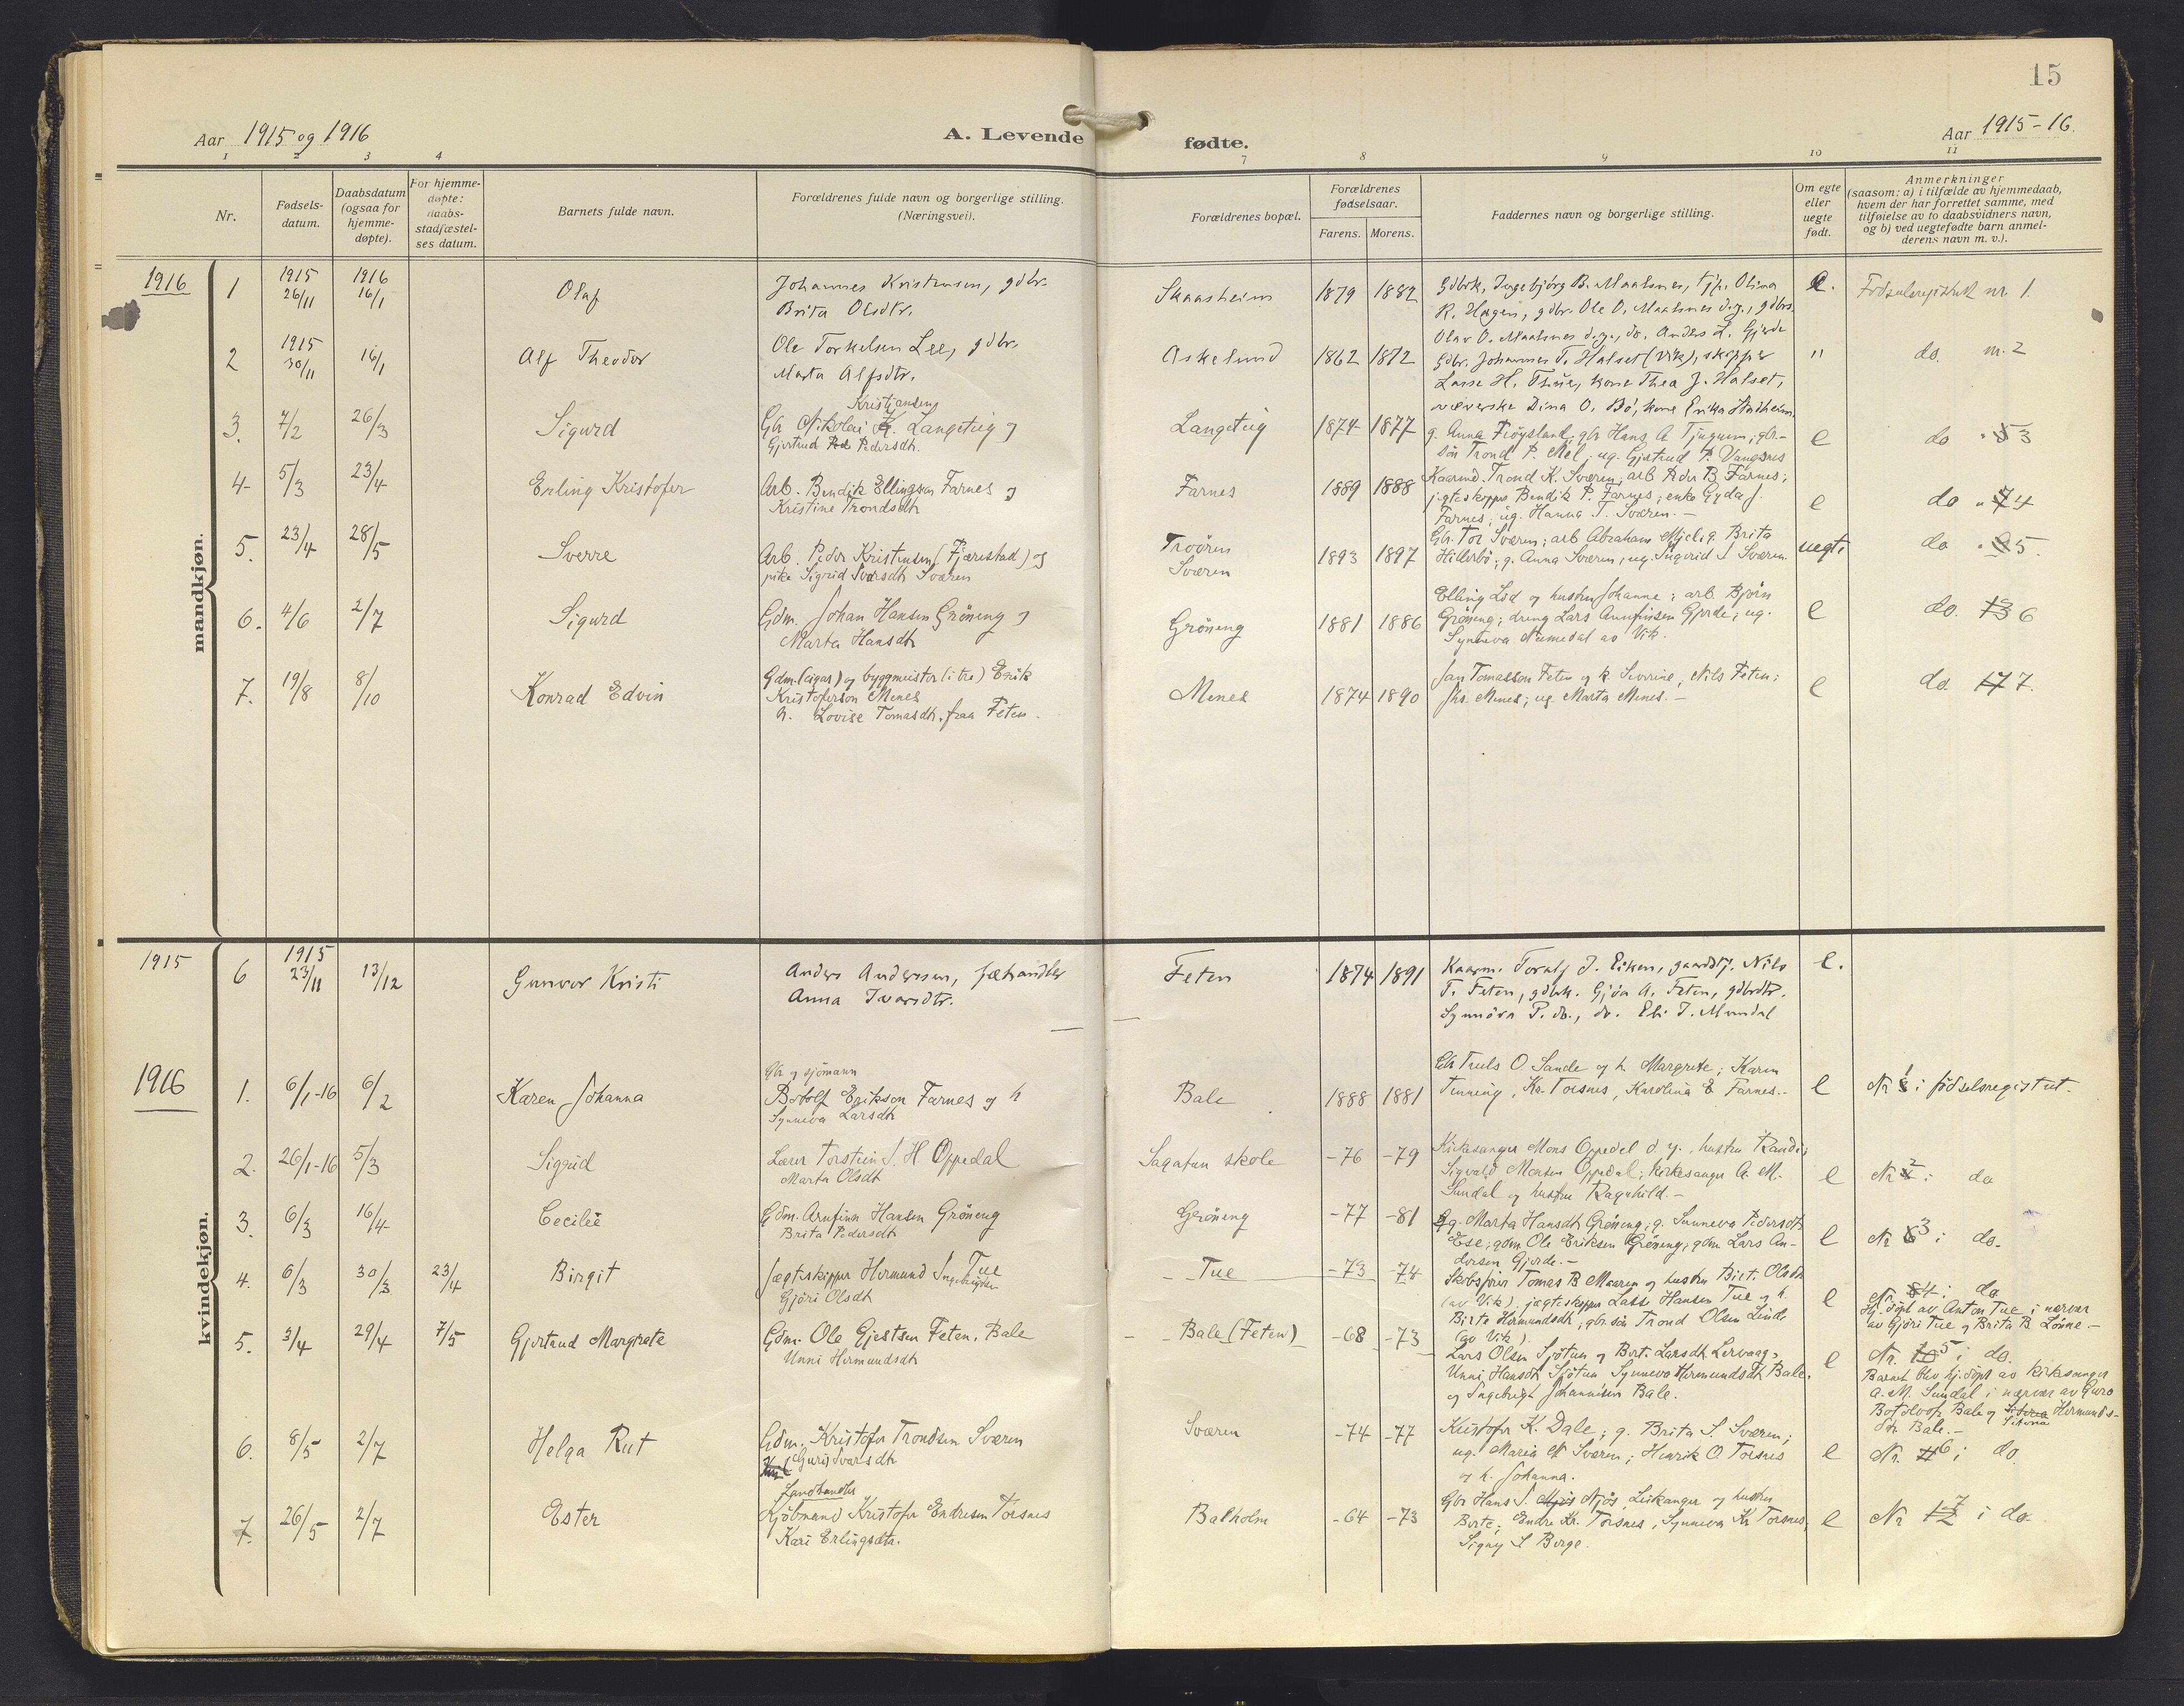 15
Aar 1915 og 1916
A. Levende fødte.
Aar 1915-16.
1 2 3 4 7 8 9 10 11
Nr.
Fødsels-
datum.
Daabsdatum
(ogsaa for
hjemme-
døpte).
For hjemme-
døpte:
daabs-
stadfæstel-
ses datum.
Barnets fulde navn.
Forældrenes fulde navn og borgerlige stilling.
(Næringsvei).
Forældrenes bopæl.
Forældrenes
fødselsaar.
Farens. Morens.
Faddernes navn og borgerlige stilling.
Om egte
eller
uegte
født.
Anmerkninger
(saasom: a) i tilfælde av hjemmedaab,
hvem der har forrettet samme, med
tilføielse av to daabsvidners navn,
og b) ved uegtefødte barn anmel-
derens navn m. v.).
mandkjøn.
1916
1 1915 26/11 1916 16/1 Olaf
Johannes Kristensen, gdbr.
Brita Olsdtr.
Skaasheim 1879 1882
Gdbrk. Ingebjörg B. Maalsnes, tjp. Olina
K. Hagen, gdbr. Ole O. Maalsnes d.y., gdbrs.
Olav O. Maalsnes d.y., do. Anders L. Gjerde
e. Fødselsregistret nr. 1.
2 1915 30/11 16/1 Alf Theodor
Ole Torkelsen Lee, gdbr.
Marta Alfsdtr.
Askelund 1862 1872
Gdbr. Johannes T. Halset (Vik), skipper
Lasse H. Thue, kone Thea J. Halset,
væverske Dina O. Bö, kone Erika Stadheim.
" do. nr. 2
3. 7/2 26/3 Sigurd
Kristiansen
Gbr Nikolai K. Langeteig og
Gjertrud Pedersdtr.
Langeteig 1874 1877
g. Anna Fröysland, gbr Hans A Tjugum; gbr-
sön Trond P. Mel; ug. Gjertrud P. Vangsnes
e do " 5 3
4. 5/3 23/4 Erling Kristofer
Arb. Bendik Ellingsen Farnes og
Kristine Trondsdtr
Farnes 1889 1888
Kaarmd. Trond K. Sværen; arb Peder B. Farnes;
jegteskipper Bendik P. Farnes; enke Gyda J.
Farnes; ug. Hanna T. Sværen. -
e do " 7 4
5. 23/4 28/5 Sverre
Arb. Peder Kristensen (Fjærestad) og
pike Sigrid Ivarsdtr Sværen
Sværen 1893 1897
Gbr. Tor Sværen; arb Abraham Mjel; g. Brita
Hillerbö; g. Anna Sværen; ug. Ingerid I Sværen.
uegte do " 5.
6. 4/6 2/7 Sigurd
Gdm. Johan Hansen Gröneng og
Marta Hansdtr
Gröneng 1881 1886
Elling Lid og hustru Johanne; arb Björn
Gröneng; dreng Lars Arnfinsen Gjerde; ug.
Synneva Numedal av Vik.
e do. 13 6
7. 19/8 8/10 Konrad Edvin
Gdm. (eigar) og byggmeister (i tre) Eirik
Kristoferson Menes
h. Lovise Tomasdtr. fraa Feten.
Menes 1874 1890
Jan Tomasson Feten og k. Severine, Nils Feten;
Jhs. Menes; ug. Marta Menes. -
e do 17 7.
kvindekjøn.
1915
6 1915 23/11 13/12 Gunvor Kristi
Anders Andersen, fæhandler
Anna Ivarsdtr.
Feten 1874 1891
Kaarm. Toralf J. Eiken, gaardbj. Nils
T. Feten, gdbrk. Gjöa A. Feten, gdbrdtr.
Synnöva P. do., do. Eli J. Mundal
e.
1916
1. 6/1-16 6/2 Karen Johanna
Gbr og sjömann
Botolf Eirikson Farnes og h
Synneva Larsdtr
Bale 1888 1881
Gbr Truls O. Sande og h. Margrete; Karen
Tenning, Kr. Torsnes, Karolina E Farnes.-
e Nr 1 i fødselsregistret.
2. 26/1-16 5/3 Sigrid
Lærer Torstein S. H. Oppedal
Marta Olsdtr
Sagatun skole -76 -79
Kirkesanger Mons Oppedal d.y., hustru Randi;
Sigvald Monsen Oppedal; kirkesanger A. M.
Sundal og hustru Ragnhild. -
e Nr 2 i do
3. 6/3 16/4 Cecilie
Gdm. Arnfinn Hansen Gröneng
Brita Pedersdtr
Gröneng -77 -81
g. Marta Hansdtr Gröneng; g. Sunneva Pedersdtr
Ese; gdm Ole Eriksen Gröneng; gdm Lars An-
dersen Gjerde. -
e Nr 3 i do.
4. 6/3 30/3 23/4 Birgit
Jægtskipper Hermund Ingebrigtsen Tue
Gjöri Olsdtr
Tue -73 -74
Skibsfører Tomas B Maaren og hustru Birt. Olsdtr
(av Vik), jægteskipper Lasse Hansen Tue og h.
Birte Hermundsdtr, gbr sön Trond Olsen Linde
(av Vik).
e Nr. 8 4 i do
Hj. döpt av Anton Tue i nærvær
av Gjöri Tue og Brita B. Lönne -
5. 3/4 29/4 7/5 Gjertrud Margrete
Gdm. Ole Gjestsen Feten, Bale
Unni Hermundsdtr
Bale (Feten) -68 -73
Lars Olsen Sjötun og Bert. Larsdtr Lervaag,
Unni Hansdtr Sjötun, Synneva Hermundsdtr Bale,
og Ingebrigt Johannesen Bale.
e Nr. 10 5 i do.
Barnet blev hj. döpt av kirkesanger
A. M. Sundal i nærvær av Guro
Botolvsdtr Bale og Hermunds-
dtr Bale. -
6. 8/5 2/7 Helga Rut
Gdm. Kristofer Trondsen Sværen
Guri Ivarsdtr
Sværen -74 -77
Kristofer K. Dale; g. Brita S. Sværen;
ug. Maria Sværen; Henrik O. Torsnes
og h. Johanna.
e Nr. 11 6 i do.
7. 26/5 2/7 Ester
Landhandler
Kjöbmand Kristofer Endresen Torsnes
Kari Erlingsdtr.
Balholm -64 -73
Gbr Hans S. Njös, Leikanger og hustru
Berte; Endre Kr. Torsnes, Synneva Kr Torsnes,
Signy S Berge.
e Nr 12 7 i do